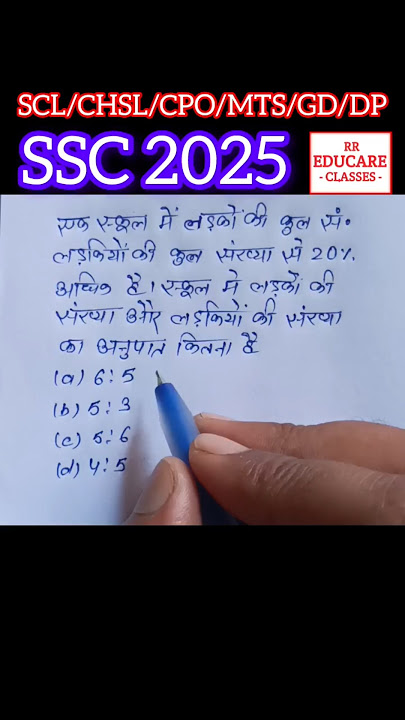 SCL/CHSL/CPO/MTS/GD/DP
SSC 2025
RR
EDUCARE
- CLASSES -
एक स्कूल में लड़कों की कुल सं॰
लड़कियों की कुल संख्या से 20%
अधिक है। स्कूल मे लड़कों की
संख्या और लड़कियों की संख्या
का अनुपात कितना है
(a) 6:5
(b) 5:3
(c) 5:6
(d) 4:5